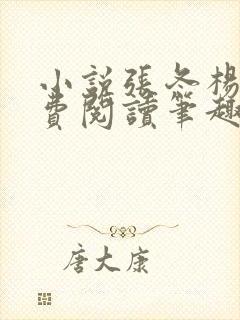 小說張冬楊
費閱讀筆趣
唐大康